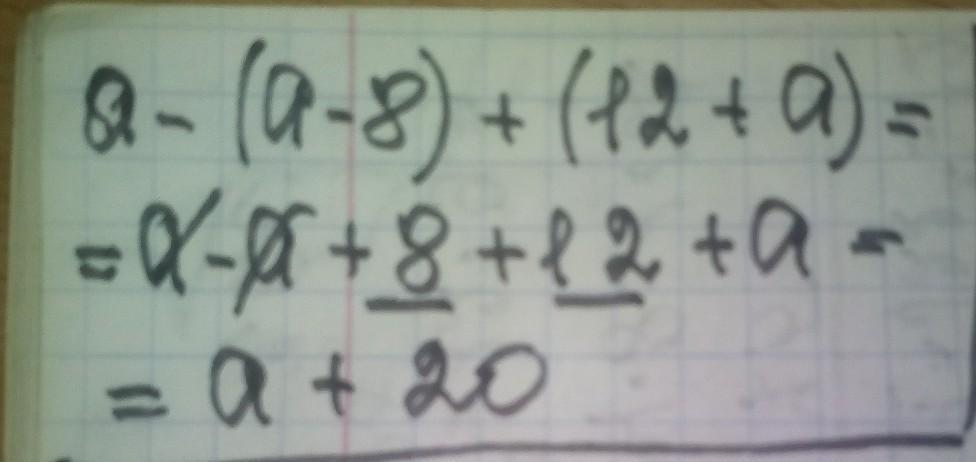 a - (a - 8) + (12 + a) =
= a - a + 8 + 12 + a =
= a + 20